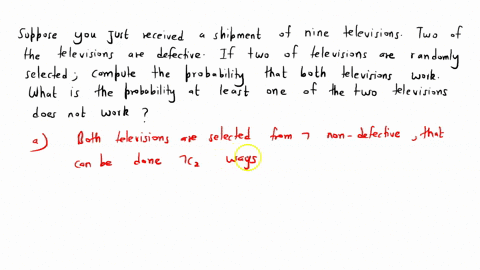 Suppose you just received a shipment of nine televisions. Two of
the televisions are defective. If two of televisions are randomly
selected, compute the probability that both televisions work.
What is the probability at least one of the two televisions
does not work?
a) Both televisions are selected from 7 non-defective, that
can be done 7C₂ ways